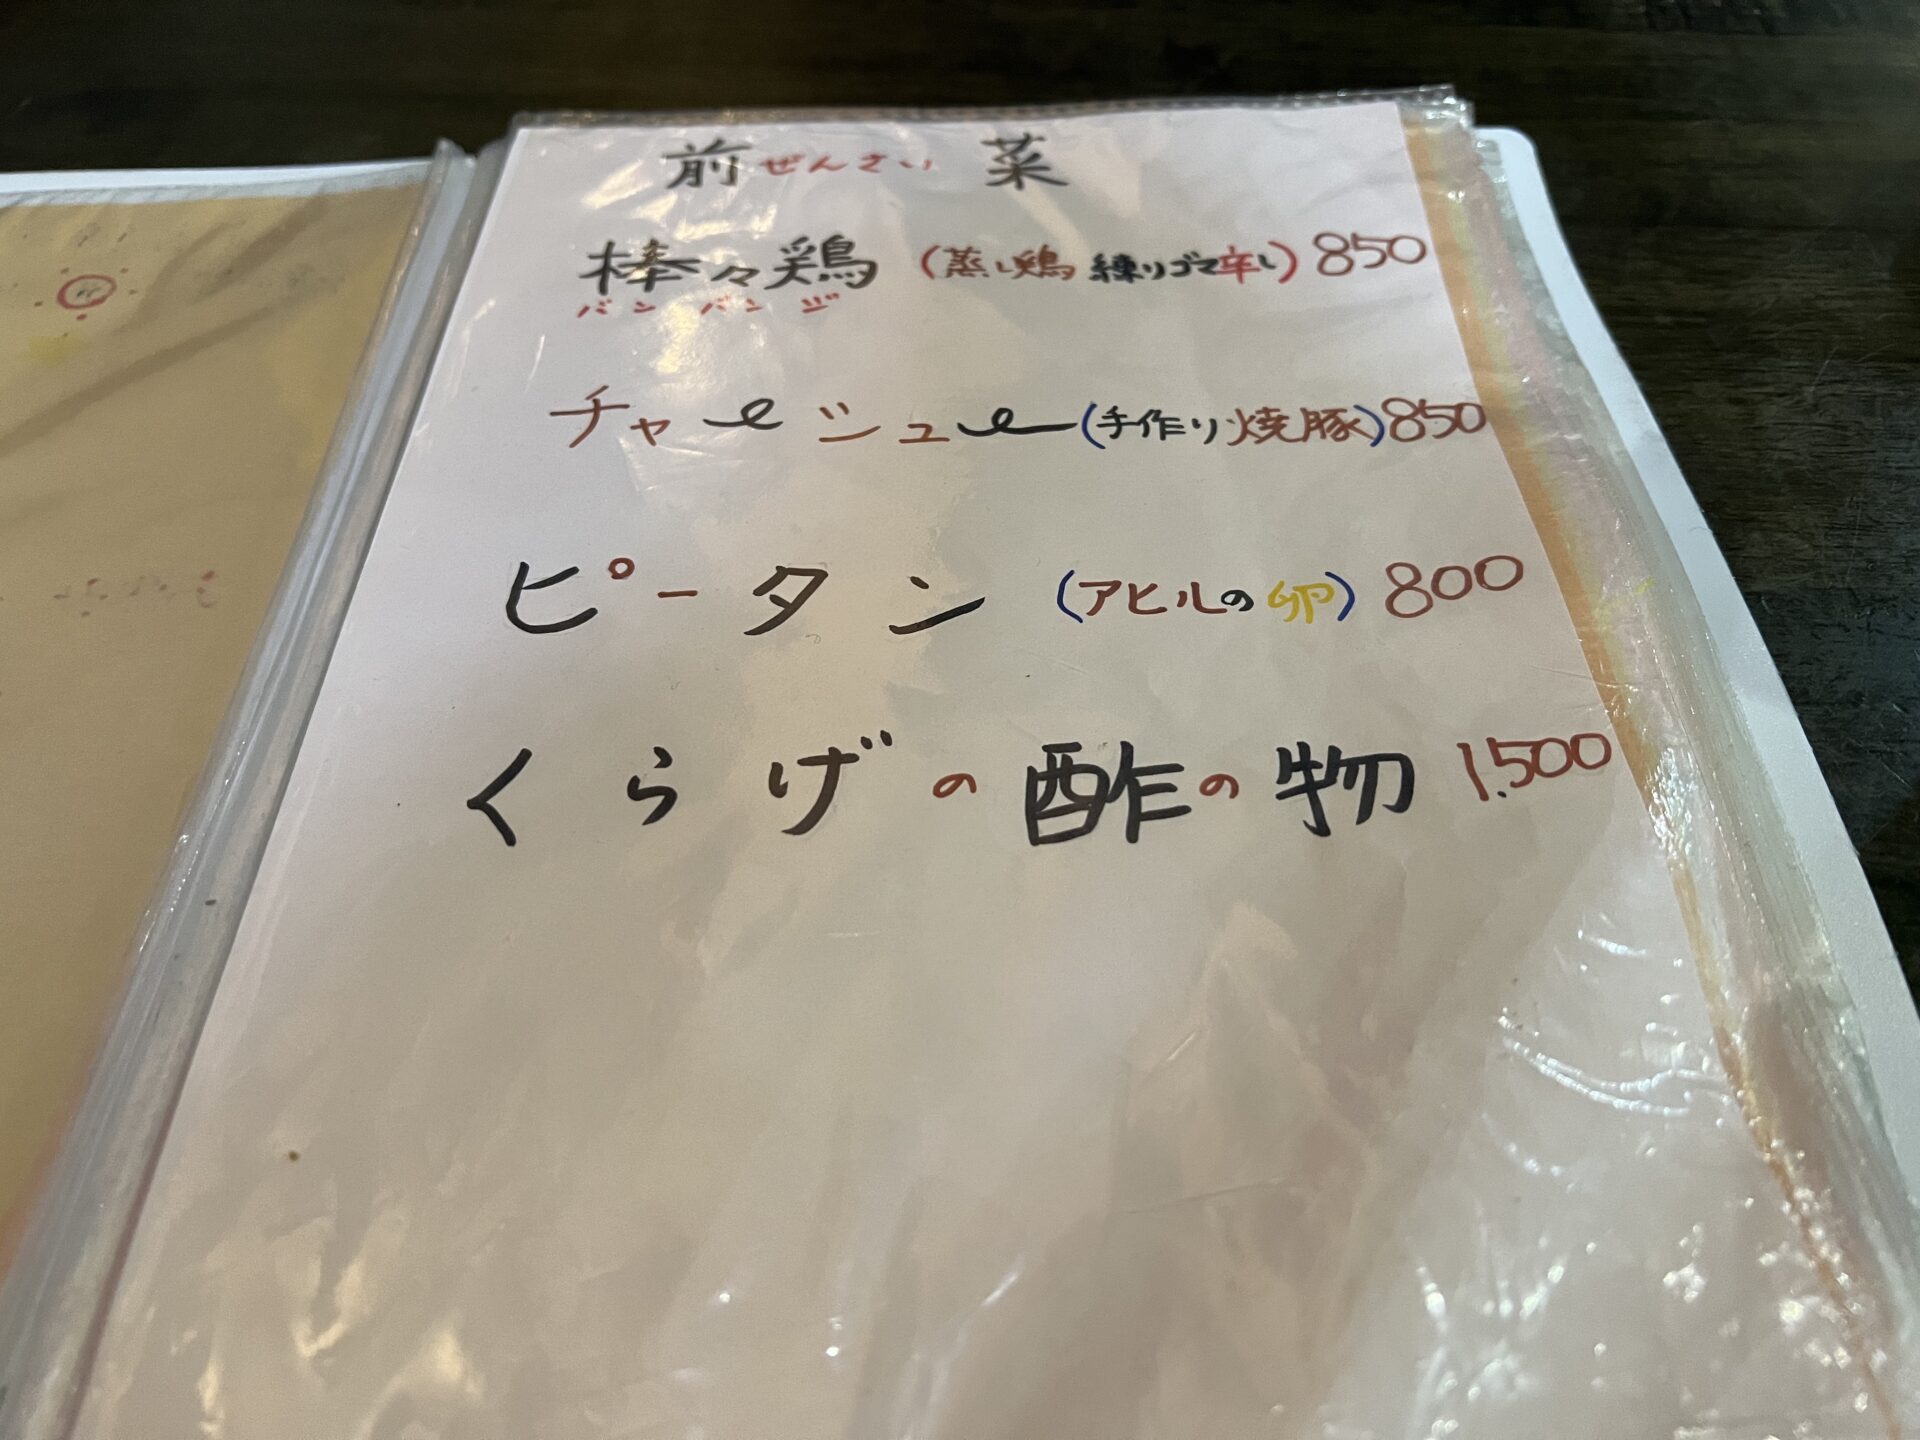 前 ぜんさい 菜
棒々鶏 (蒸し鶏 練りゴマ辛し) 850
バンバンジ
チャーシュー (手作り焼豚) 850
ピータン (アヒルの卵) 800
くらげの酢の物 1,500